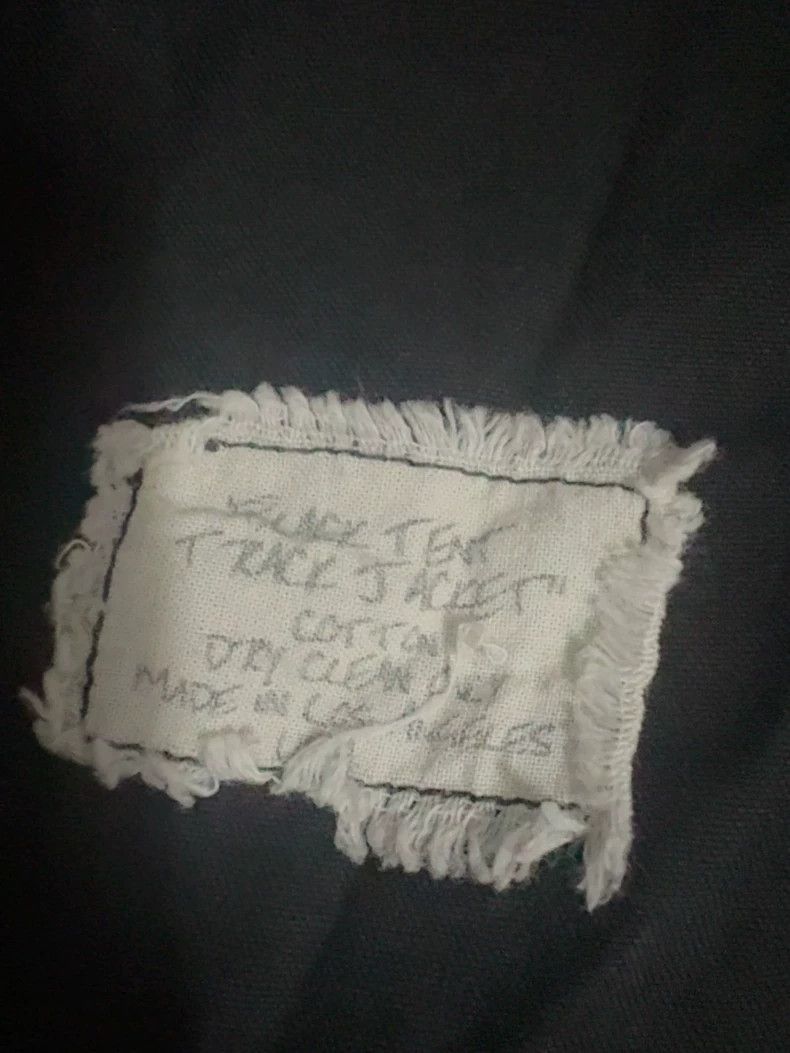 BLACK TENT
TRACK JACKET"
COTTON
DRY CLEAN ONLY
MADE IN LOS ANGELES